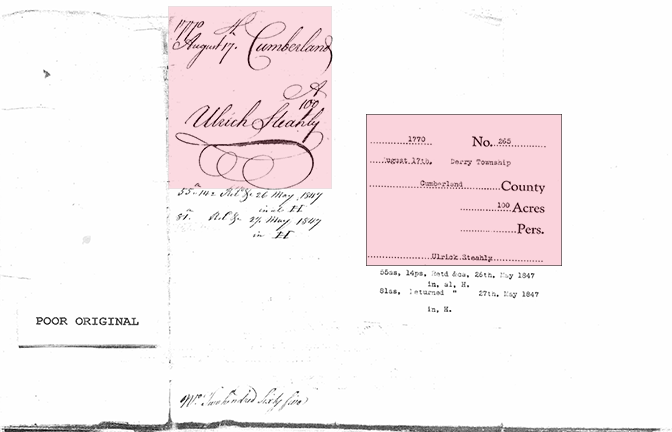 1770
August 17. Cumberland
A
100
Ulrich Steahly
55a 142 Ret &c 26 May 1847
in al H
81a Ret &c 27 May 1847
in H
POOR ORIGINAL
No. Two hundred Sixty five
1770 No. 265
August 17th, Derry Township
Cumberland County
100 Acres
Pers.
Ulrick Steahly
55as, 14ps, Retd &ca, 26th, May 1847
in, al, H.
81as, Returned " 27th, May 1847
in, H.